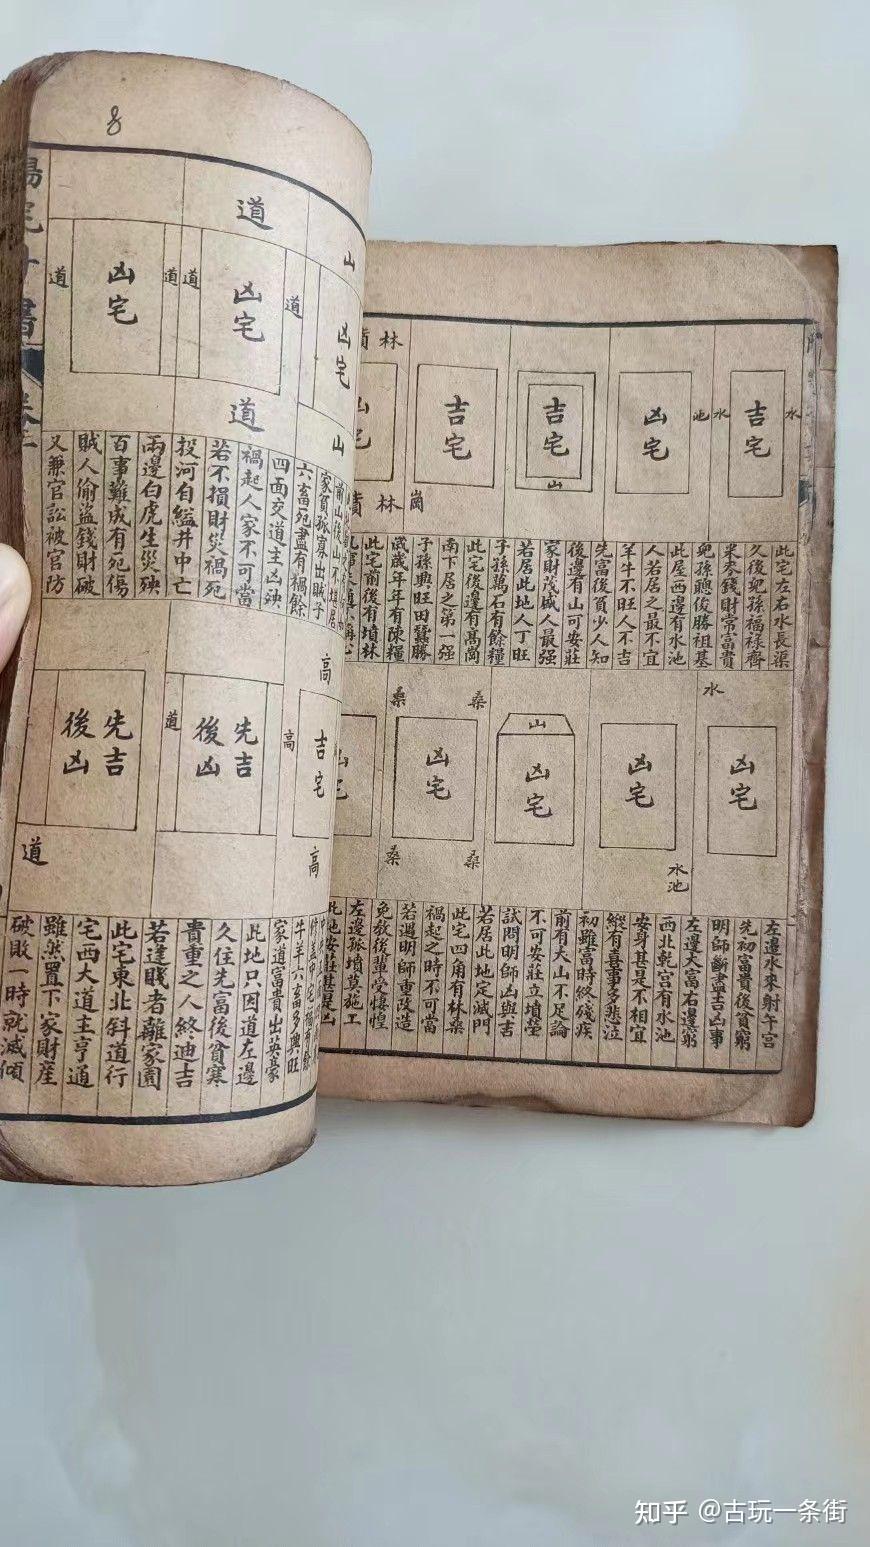 水
吉宅
水
池
凶宅
吉宅
山
吉宅
崗
林
林
此宅左右水長渠
久後兒孫福禄齊
米麥錢財常富貴
兒孫聰俊勝祖基
此屋西邊有水池
人若居之最不宜
羊牛不旺人不吉
先富後貧少人知
後邊有山可安莊
家財茂盛人最强
若居此地人丁旺
子孫萬石有餘糧
此宅後邊有髙崗
南下居之第一强
子孫興旺田蠶勝
歲歲年年有陳糧
此宅前後有墳林
水
凶宅
凶宅
水池
山
凶宅
桑
桑
凶宅
桑
桑
左邊水來射午宫
先初富貴後貧窮
明師斷盡吉凶事
左邊大富右邊窮
西北乾宫有水池
安身甚是不相宜
縱有喜事多悲泣
初雖富時終殘疾
前有大山不足論
不可安莊立墳塋
試問明師凶與吉
若居此地定滅門
此宅四角有林桑
禍起之時不可當
若遇明師重改造
免教後輩受悽惶
左邊孤墳莫施工
此地安莊甚是凶
8
山
凶宅
山
道
道
凶宅
道
道
道
凶宅
道
前山後山不堪居
家貧孤寡出賊子
六畜死盡有禍餘
四面交道主凶殃
禍起人家不可當
若不損財災禍死
投河自縊井中亡
兩邊白虎生災殃
百事難成有死傷
賊人偷盗錢財破
又兼官訟被官防
高
吉宅
高
高
先吉
後凶
道
先吉
後凶
道
牛羊六畜多興旺
家道富貴出英豪
此地只因道左邊
久住先富後貧寒
貴重之人終迪吉
若逢賤者離家園
此宅東北斜道行
宅西大道主亨通
雖然置下家財産
破敗一時就滅傾
知乎 @古玩一条街